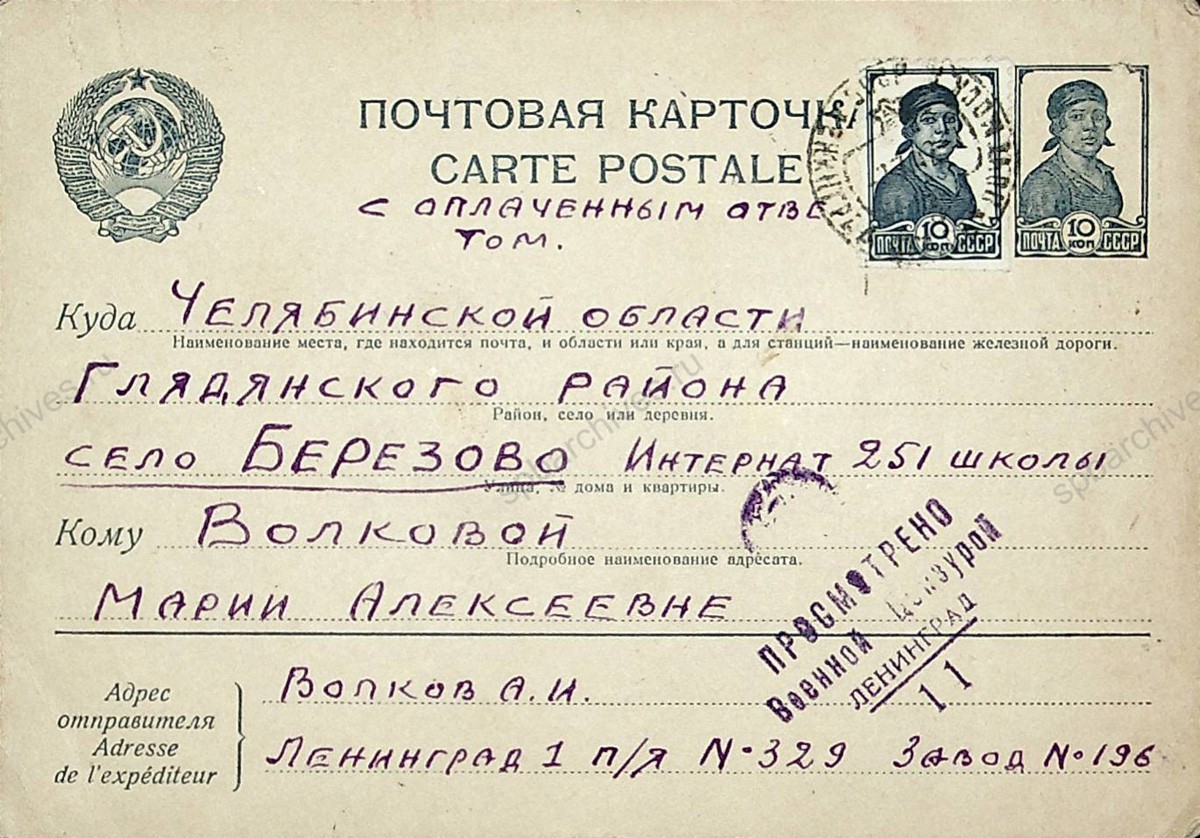 ПОЧТОВАЯ КАРТОЧКА
CARTE POSTALE
С ОПЛАЧЕННЫМ ОТВЕ
ТОМ.
10 КОП
ПОЧТА СССР
10 КОП
ПОЧТА СССР
Куда ЧЕЛЯБИНСКОЙ ОБЛАСТИ
Наименование места, где находится почта, и области или края, а для станций—наименование железной дороги.
ГЛЯДЯНСКОГО РАЙОНА
Район, село или деревня.
СЕЛО БЕРЕЗОВО ИНТЕРНАТ 251 ШКОЛЫ
Улица, № дома и квартиры.
Кому ВОЛКОВОЙ
Подробное наименование адресата.
МАРИИ АЛЕКСЕЕВНЕ
ПРОСМОТРЕНО
Военной Цензурой
ЛЕНИНГРАД
11
Адрес отправителя
Adresse de l'expéditeur
ВОЛКОВ А.И.
ЛЕНИНГРАД 1 П/Я №329 ЗАВОД №196
spbarchives.ru